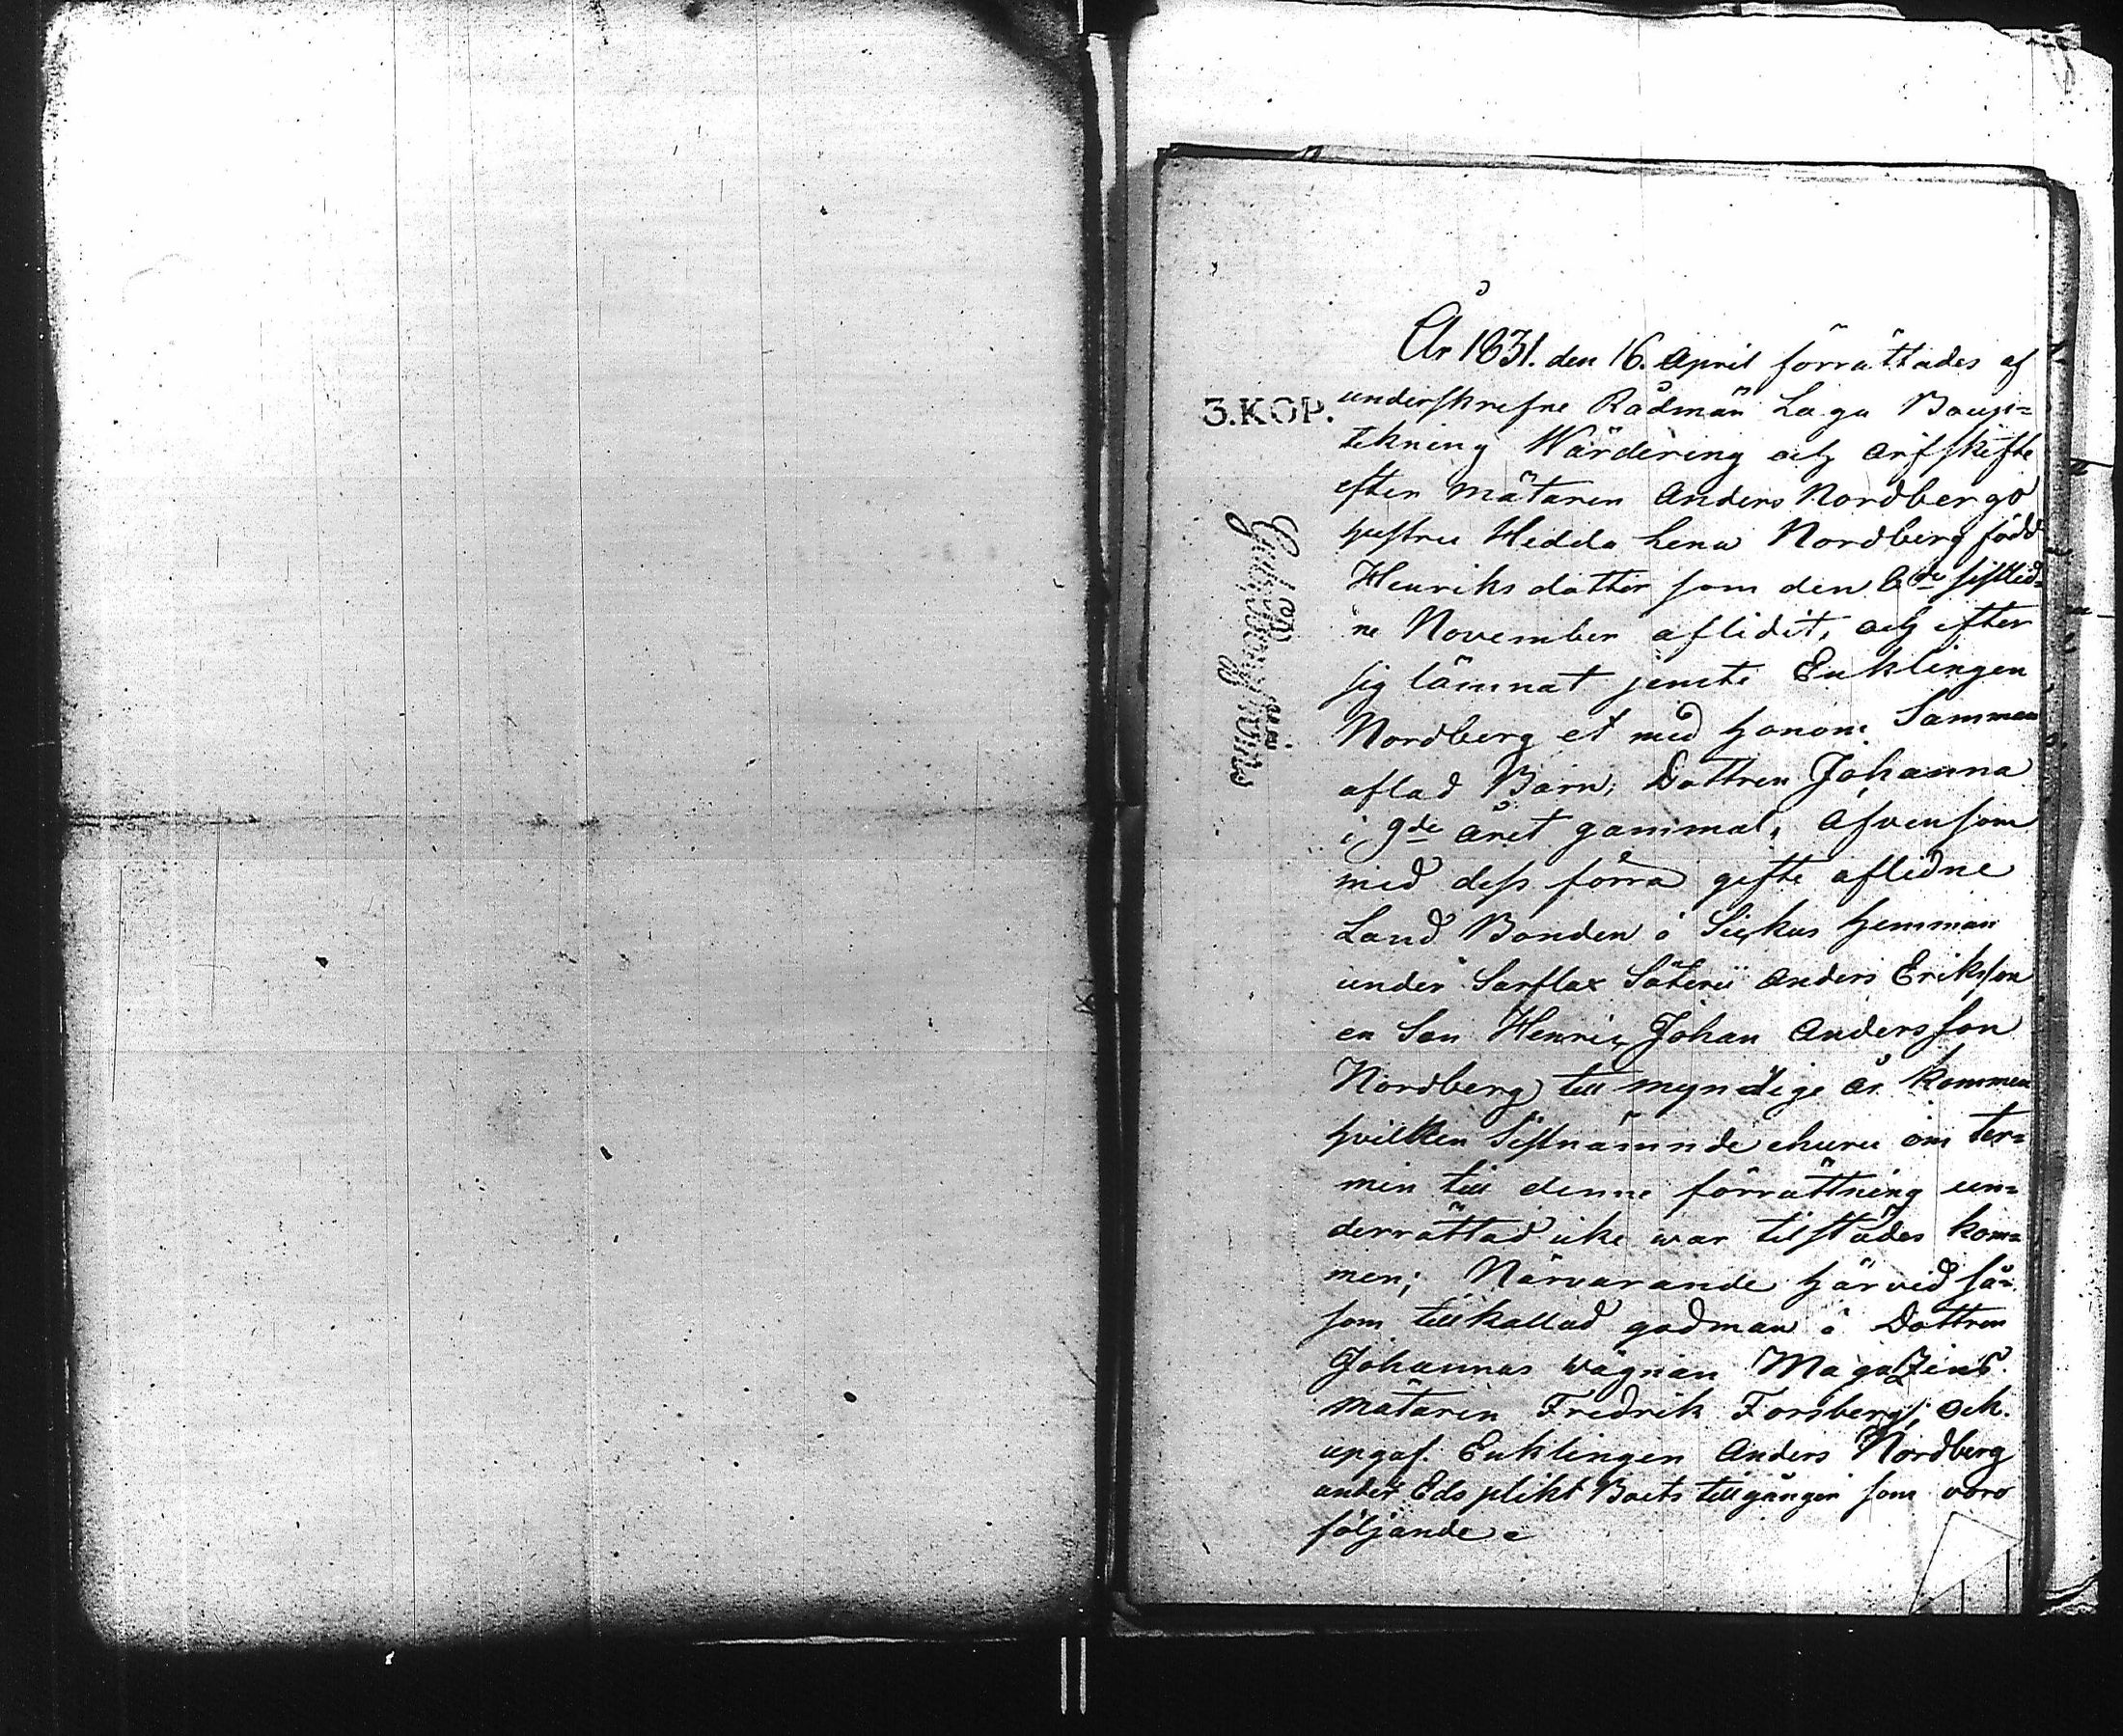 År 1831. den 16. April förrättades af
3.KOP.
underskrefne Rådmän Laga Boupi=
tekning Wärdering och Arfskifte
efter mätaren Anders Nordbergs
hustru Hedda Lena Nordberg född
Henriksdotter som den 6te sistlid=
ne November aflidit, och efter
sig lämnat jemte Enklingen
Nordberg et med honom Samman
aflad Barn, Dottren Johanna
i 9de året gammal, Äfvensom
med dess förra gifte aflidne
Land Bonden å hemman
under Sarflax Säterii Anders Eriksson
en Son Henric Johan Andersson
Nordberg till myndige år kommen
hvilken Sistnämnde ehuru om ter=
min till denne förrättning un=
derrättad icke war tilstädes kom=
men; Närvarande härvid så=
som tillkallad godman å Dottren
Johannas wägnan Magazins
mätaren Fredrik Forsberg; och
upgaf Enklingen Anders Nordberg
under Eds plikt Boets tillgångar som voro
följande